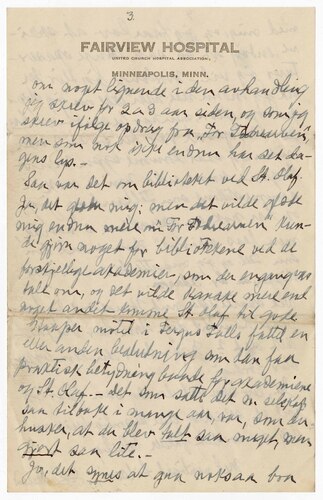 3.
FAIRVIEW HOSPITAL
UNITED CHURCH HOSPITAL ASSOCIATION,
MINNEAPOLIS, MINN.
om noget lignende i den avhandling
jeg skrev for 2 a 3 aar siden, og som jeg
skrev ifølge opdrag fra "For
men som nok ikke endnu har set da-
gens lys. –
Saa var det om biblioteket ved St. Olaf.
Jo, det mig; men det vilde glæde
mig endnu mere om "For kun-
de gjøre noget for bibliotekene ved de
forskjellige akademier, som du engang
talte om, og det vilde kanske mere end
noget andet komme St. Olaf til gode.
møtet i Fergus Falls fattet en
eller anden beslutning som kan faa
praktisk betydning baade for akademiene
og St. Olaf – det som satte det
Saa tilbake i mange aar var, som du
husker, at du blev talt saa meget, men
gjort saa lite. –
Jo, det synes at gaa noksaa bra